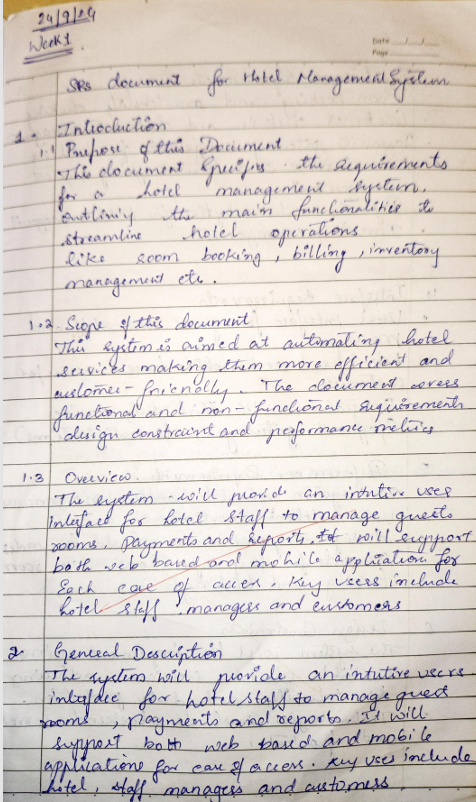 24/9/24
Week 1
Date
Page
SRS document for Hotel Management System
1. Introduction
1.1 Purpose of this Document
This document specifies the requirements
for a hotel management system,
outlining the main functionalities to
streamline hotel operations
like room booking, billing, inventory
management etc.
1.2 Scope of this document
This system is aimed at automating hotel
services making them more efficient and
customer-friendly. The document covers
functional and non-functional requirements
design constraint and performance metrics
1.3 Overview
The system will provide an intutive user
interface for hotel staff to manage guests
rooms, payments and reports. It will support
both web based and mobile application for
Each case of access. Key users include
hotel staff, managers and customers
2 General Description
The system will provide an intutive users
interface for hotel staff to manage guest
rooms, payments and reports. It will
support both web based and mobile
applications for ease of access. Key uses include
hotel, staff managers and customers